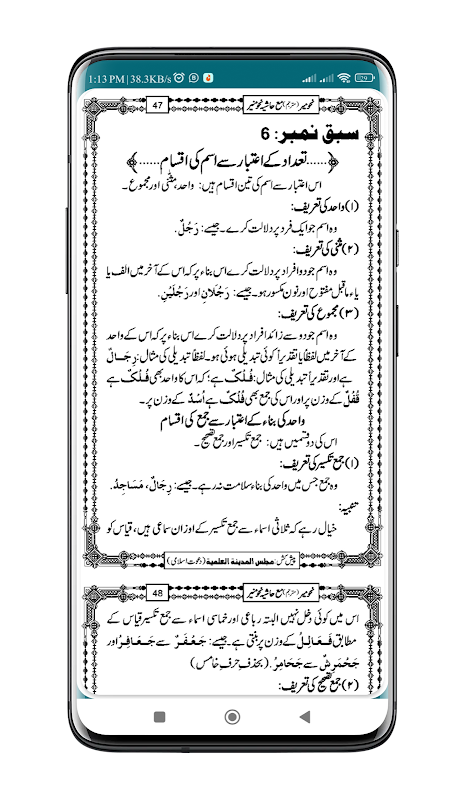 1:13 PM | 38.3KB/s
47 نحومیر (مترجم) مع حاشیہ نحومنیر
سبق نمبر: 6
﴿......تعداد کے اعتبار سے اسم کی اقسام......﴾
اس اعتبار سے اسم کی تین اقسام ہیں: واحد، مثنّٰی اور مجموع۔
(۱) واحد کی تعریف:
وہ اسم جو ایک فرد پر دلالت کرے۔ جیسے: رَجُلٌ.
(۲) مثنی کی تعریف:
وہ اسم جو دو افراد پر دلالت کرے اس بناء پر کہ اس کے آخر میں الف یا
یاء ماقبل مفتوح اور نون مکسور ہو۔ جیسے: رَجُلَانِ اور رَجُلَيْنِ.
(۳) مجموع کی تعریف:
وہ اسم جو دو سے زائد افراد پر دلالت کرے اس بناء پر کہ اس کے واحد
کے آخر میں لفظاً یا تقدیراً کوئی تبدیلی ہوئی ہو۔ لفظاً تبدیلی کی مثال: رِجَالٌ
ہے اور تقدیراً تبدیلی کی مثال: فُلْكٌ ہے؛ کہ اس کا واحد بھی فُلْكٌ ہے
قُفْلٌ کے وزن پر اور اس کی جمع بھی فُلْكٌ ہے اُسْدٌ کے وزن پر۔
واحد کی بناء کے اعتبار سے جمع کی اقسام
اس کی دو قسمیں ہیں: جمع تکسیر اور جمع تصحیح۔
(۱) جمع تکسیر کی تعریف:
وہ جمع جس میں واحد کی بناء سلامت نہ رہے۔ جیسے: رِجَالٌ، مَسَاجِدُ.
تنبیہ:
خیال رہے کہ ثلاثی اسماء سے جمع تکسیر کے اوزان سماعی ہیں، قیاس کو
پیش کش: مجلس المدینة العلمیة (دعوت اسلامی)
48 نحومیر (مترجم) مع حاشیہ نحومنیر
اس میں کوئی دخل نہیں البتہ رباعی اور خماسی اسماء سے جمع تکسیر قیاس کے
مطابق فَعَالِلُ کے وزن پر بنتی ہے۔ جیسے: جَعْفَرٌ سے جَعَافِرُ اور
جَحْمَرِشٌ سے جَحَامِرُ. (بحذف حرف خامس)
(۲) جمع تصحیح کی تعریف: